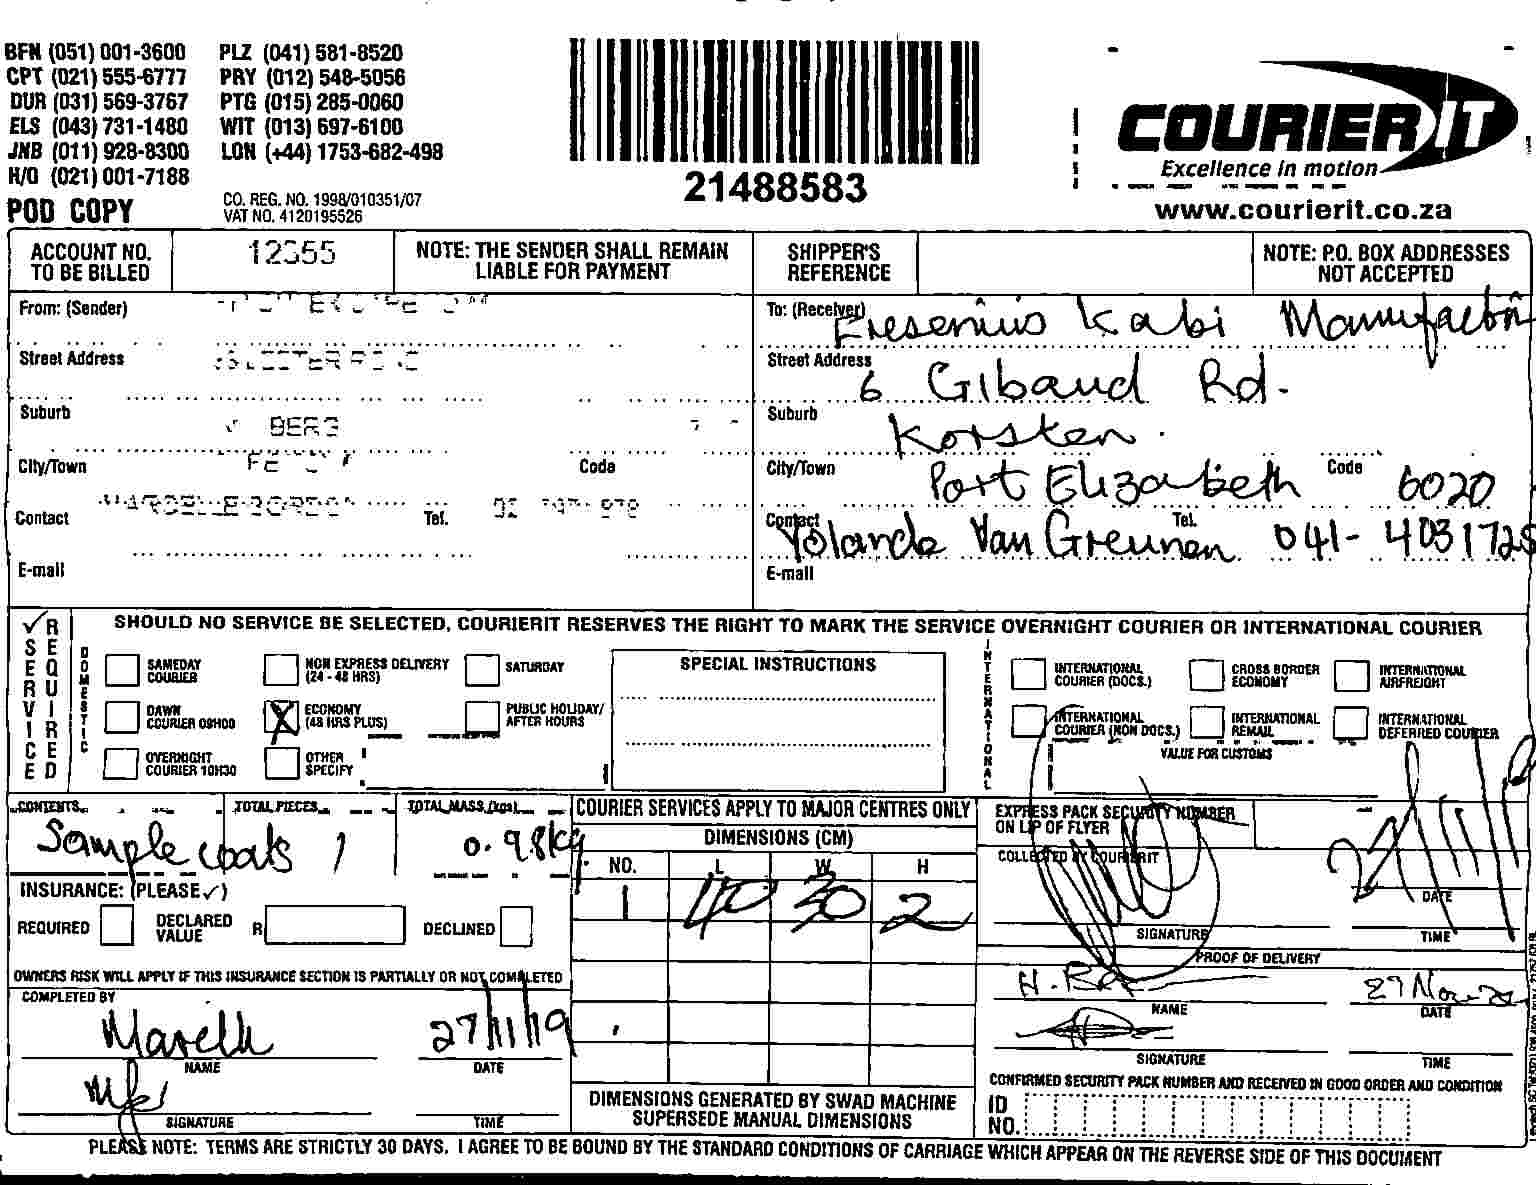 BFN (051) 001-3600 PLZ (041) 581-8520
CPT (021) 555-6777 PRY (012) 548-5056
DUR (031) 569-3767 PTG (015) 285-0060
ELS (043) 731-1480 WIT (013) 697-6100
JNB (011) 928-8300 LON (+44) 1753-682-498
H/O (021) 001-7188
POD COPY
CO. REG. NO. 1998/010351/07
VAT NO. 4120195526
21488583
COURIER IT
Excellence in motion
www.courierit.co.za
ACCOUNT NO. TO BE BILLED
12355
NOTE: THE SENDER SHALL REMAIN LIABLE FOR PAYMENT
SHIPPER'S REFERENCE
NOTE: P.O. BOX ADDRESSES NOT ACCEPTED
From: (Sender)
Street Address
Suburb BERG
City/Town Code
Contact Tel.
E-mail
To: (Receiver) Fresenius Kabi Manufacturing
Street Address 6 Gibaud Rd.
Suburb Korsten.
City/Town Port Elizabeth Code 6020
Contact Yolande Van Greunen Tel. 041- 4031728
E-mail
SERVICE REQUIRED
SHOULD NO SERVICE BE SELECTED, COURIERIT RESERVES THE RIGHT TO MARK THE SERVICE OVERNIGHT COURIER OR INTERNATIONAL COURIER
DOMESTIC
SAMEDAY COURIER
NON EXPRESS DELIVERY (24 - 48 HRS)
SATURDAY
DAWN COURIER 09H00
X ECONOMY (48 HRS PLUS)
PUBLIC HOLIDAY/ AFTER HOURS
OVERNIGHT COURIER 10H30
OTHER SPECIFY
SPECIAL INSTRUCTIONS
INTERNATIONAL
INTERNATIONAL COURIER (DOCS.)
CROSS BORDER ECONOMY
INTERNATIONAL AIRFREIGHT
INTERNATIONAL COURIER (NON DOCS.)
INTERNATIONAL REMAIL
INTERNATIONAL DEFERRED COURIER
VALUE FOR CUSTOMS
CONTENTS TOTAL PIECES TOTAL MASS (kgs)
Sample coats 1 0.98kg
INSURANCE: (PLEASE ✓)
REQUIRED DECLARED VALUE R DECLINED
OWNERS RISK WILL APPLY IF THIS INSURANCE SECTION IS PARTIALLY OR NOT COMPLETED
COMPLETED BY
27/11/19
NAME DATE
SIGNATURE TIME
COURIER SERVICES APPLY TO MAJOR CENTRES ONLY
DIMENSIONS (CM)
NO. L W H
1 40 30 2
DIMENSIONS GENERATED BY SWAD MACHINE SUPERSEDE MANUAL DIMENSIONS
EXPRESS PACK SECURITY NUMBER ON LIP OF FLYER
COLLECTED BY COURIERIT
DATE
SIGNATURE TIME
PROOF OF DELIVERY
NAME DATE
SIGNATURE TIME
CONFIRMED SECURITY PACK NUMBER AND RECEIVED IN GOOD ORDER AND CONDITION
ID NO.
PLEASE NOTE: TERMS ARE STRICTLY 30 DAYS. I AGREE TO BE BOUND BY THE STANDARD CONDITIONS OF CARRIAGE WHICH APPEAR ON THE REVERSE SIDE OF THIS DOCUMENT